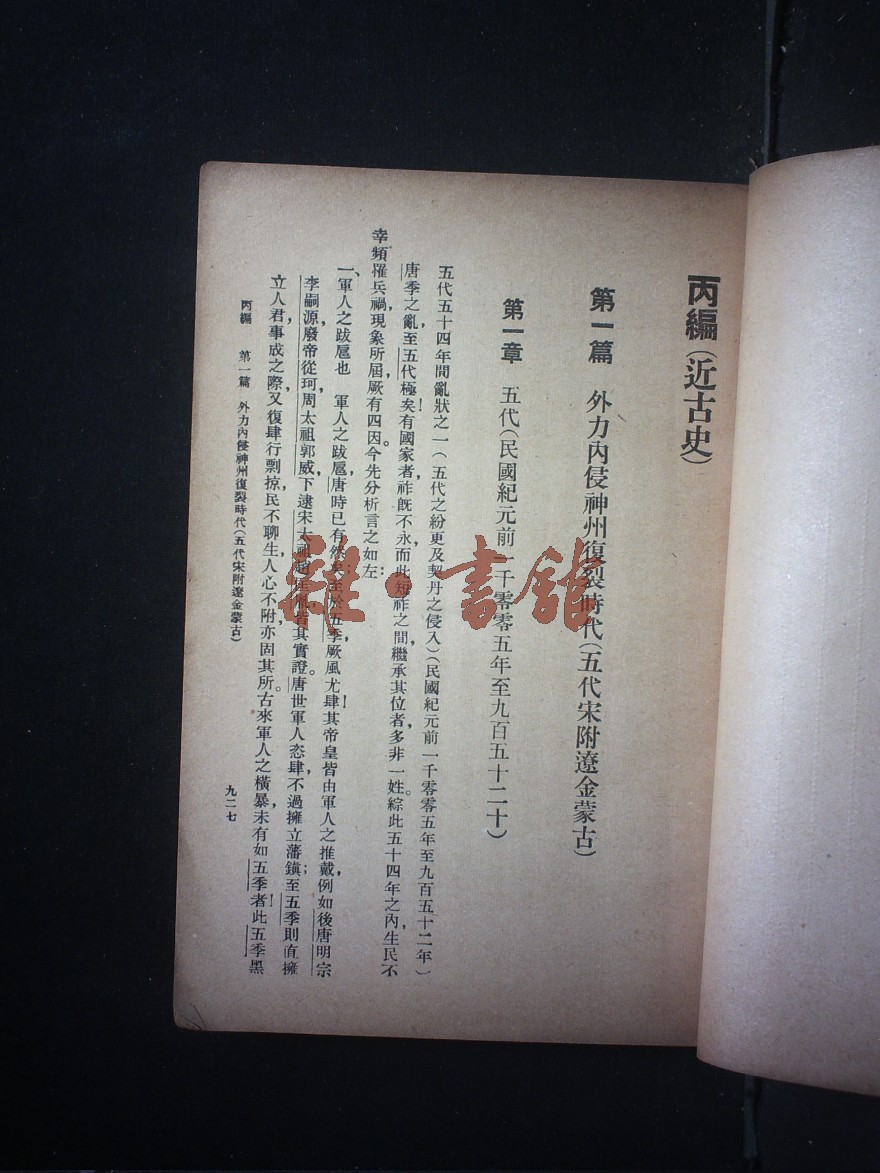 丙編(近古史)
第一篇 外力內侵神州復裂時代(五代宋附遼金蒙古)
第一章 五代(民國紀元前一千零零五年至九百五十二十)
五代五十四年間亂狀之一(五代之紛更及契丹之侵入)(民國紀元前一千零零五年至九百五十二年)
唐季之亂,至五代極矣!有國家者,祚旣不永,而此短祚之間,繼承其位者,多非一姓。綜此五十四年之內,生民不
幸,頻罹兵禍,現象所屆,厥有四因。今先分析言之如左:
一、軍人之跋扈也 軍人之跋扈,唐時已有然矣;至於五季,厥風尤肆!其帝皇皆由軍人之推戴,例如後唐明宗
李嗣源,廢帝從珂,周太祖郭威,下逮宋太祖趙匡胤,皆其實證。唐世軍人恣肆,不過擁立藩鎭;至五季則直擁
立人君,事成之際,又復肆行剽掠,民不聊生,人心不附,亦固其所。古來軍人之橫暴,未有如五季者!此五季黑
丙編 第一篇 外力內侵神州復裂時代(五代宋附遼金蒙古)
九二七
雜·書館